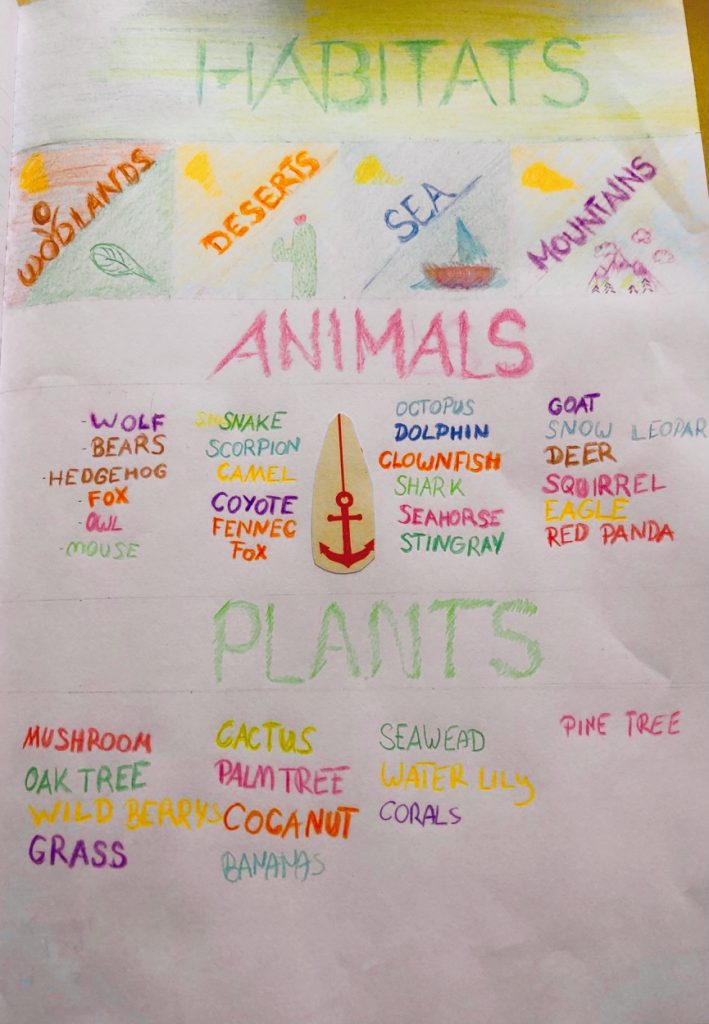 HABITATS
WOODLANDS
DESERTS
SEA
MOUNTAINS
ANIMALS
- WOLF
- BEARS
- HEDGEHOG
- FOX
- OWL
- MOUSE
SNAKE
SCORPION
CAMEL
COYOTE
FENNEC
FOX
OCTOPUS
DOLPHIN
CLOWNFISH
SHARK
SEAHORSE
STINGRAY
GOAT
SNOW LEOPAR
DEER
SQUIRREL
EAGLE
RED PANDA
PLANTS
MUSHROOM
OAK TREE
WILD BERRYS
GRASS
CACTUS
PALM TREE
COCANUT
BANANAS
SEAWEAD
WATER LILY
CORALS
PINE TREE